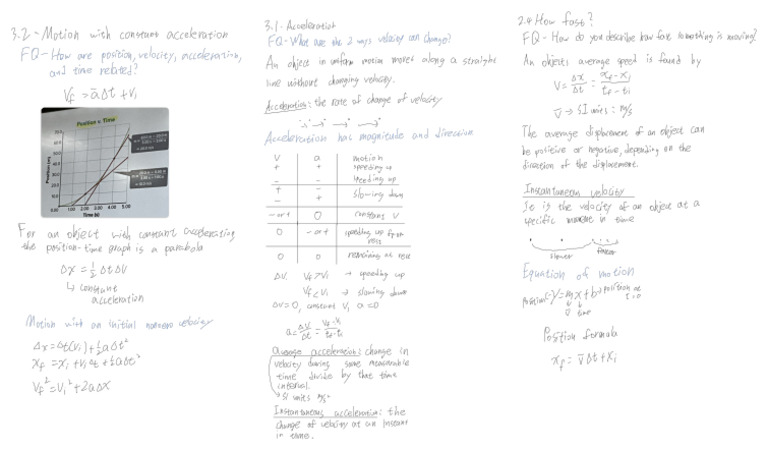 3.2 - Motion with constant acceleration
FQ - How are position, velocity, acceleration,
and time related?
Vf = āΔt + Vi
Position v. Time
Position (m)
Time (s)
For an object with constant accelerating
the position-time graph is a parabola
Δx = ½ Δt ΔV
↳ constant
acceleration
Motion with an initial nonzero velocity
Δx = Δt(Vi) + ½aΔt²
Xf = Xi + Vi Δt + ½aΔt²
Vf² = Vi² + 2aΔx
3.1 - Acceleration
FQ - What are the 2 ways velocity can change?
An object in uniform motion moves along a straight
line without changing velocity.
Acceleration: the rate of change of velocity
Acceleration has magnitude and direction
V a motion
+ + speeding up
- - speeding up
+ -
- + slowing down
- or + 0 constant V
0 - or + speeding up from
rest
0 0 remaining at rest
ΔV Vf > Vi → speeding up
Vf < Vi → slowing down
ΔV = 0, constant V, a = 0
a = ΔV/Δt = Vf - Vi / tf - ti
average acceleration: change in
velocity during some measurable
time divide by that time
interval.
→ SI units m/s²
Instantaneous acceleration: the
change of velocity at an instant
in time.
2.4 How fast?
FQ - How do you describe how fast something is moving?
An objects average speed is found by
V = Δx/Δt = xf - xi / tf - ti
V̄ → SI units: m/s
The average displacement of an object can
be positive or negative, depending on the
direction of the displacement.
Instantanean velocity
It is the velocity of an object at a
specific moment in time
slower faster
Equation of motion
Position ← y = mx + b → position at
t = 0
V̄ time
Position formula
xf = V̄ Δt + Xi